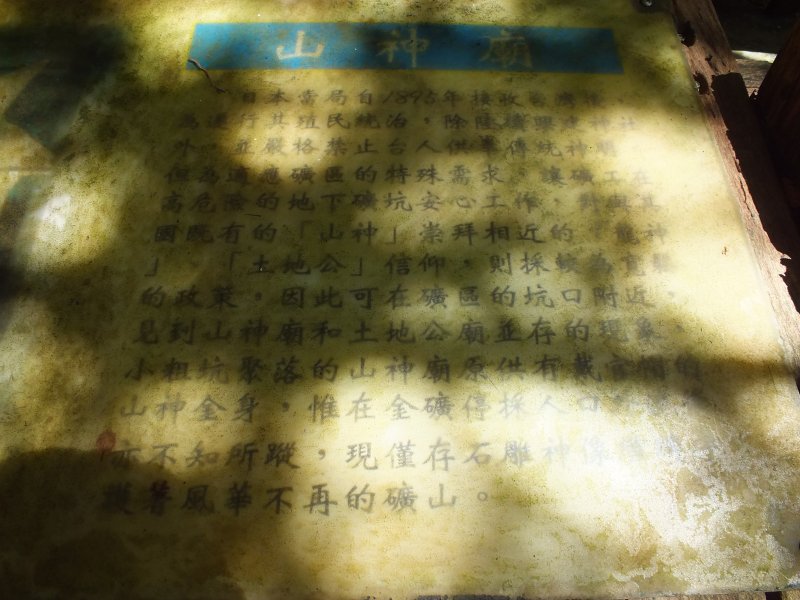 山神廟
日本當局自1895年接收台灣後,
為遂行其殖民統治,除陸續興建神社
外,並嚴格禁止台人供奉傳統神明
但為適應礦區的特殊需求,讓礦工在
高危險的地下礦坑安心工作,對與其
國既有的「山神」崇拜相近的「龍神
」「土地公」信仰,則採較為寬鬆
的政策。因此可在礦區的坑口附近,
見到山神廟和土地公廟並存的現象。
小粗坑聚落的山神廟原供有戴官帽的
山神金身,惟在金礦停採人口
亦不知所蹤,現僅存石雕神像
護著風華不再的礦山。